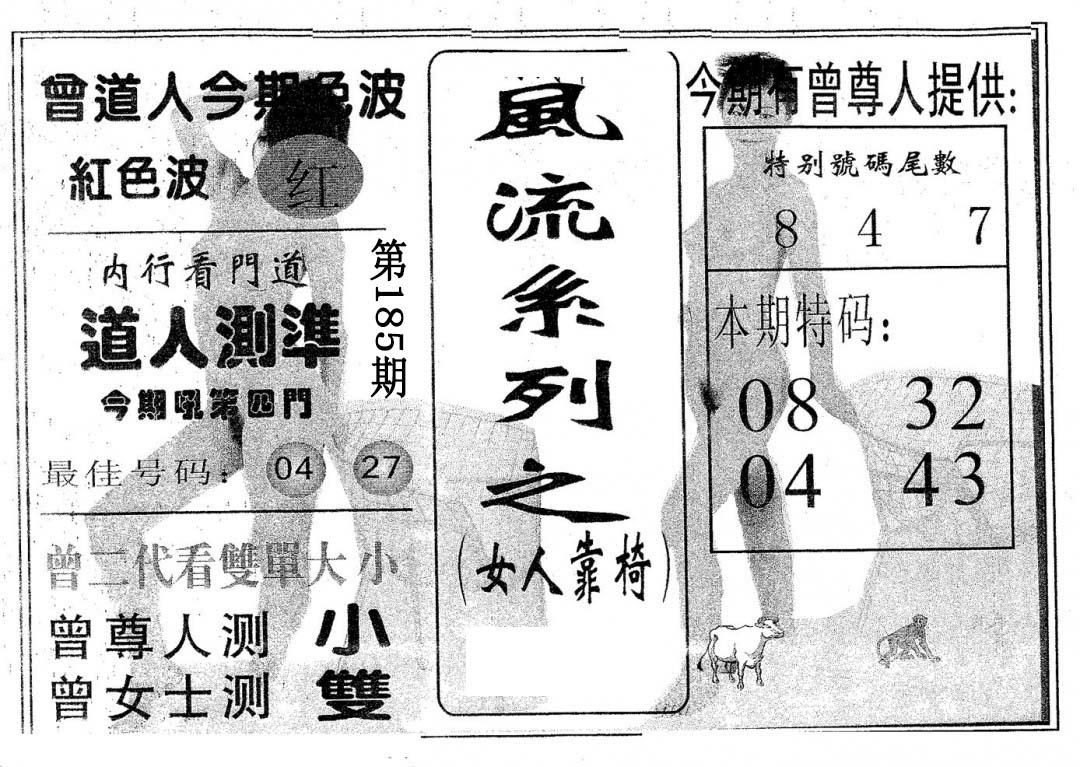 曾道人今期色波
紅色波 红
内行看門道
道人測準
今期吼第四門
最佳号码: 04 27
曾二代看雙單大小
曾尊人测 小
曾女士测 雙
第185期
風流系列之
(女人靠椅)
今期有曾尊人提供:
特别號碼尾數
8 4 7
本期特码:
08 32
04 43